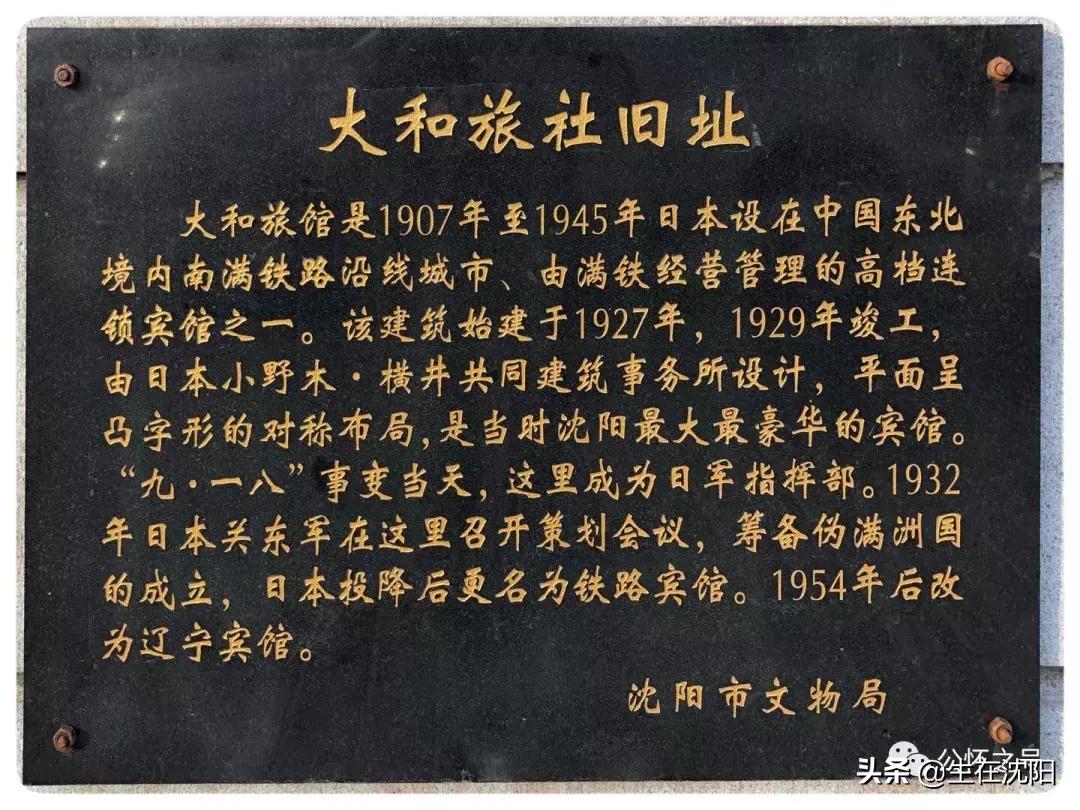 大和旅社旧址
大和旅馆是1907年至1945年日本设在中国东北
境内南满铁路沿线城市、由满铁经营管理的高档连
锁宾馆之一。该建筑始建于1927年，1929年竣工，
由日本小野木·横井共同建筑事务所设计，平面呈
凸字形的对称布局，是当时沈阳最大最豪华的宾馆。
“九·一八”事变当天，这里成为日军指挥部。1932
年日本关东军在这里召开策划会议，筹备伪满洲国
的成立，日本投降后更名为铁路宾馆。1954年后改
为辽宁宾馆。
沈阳市文物局
头条@生在沈阳